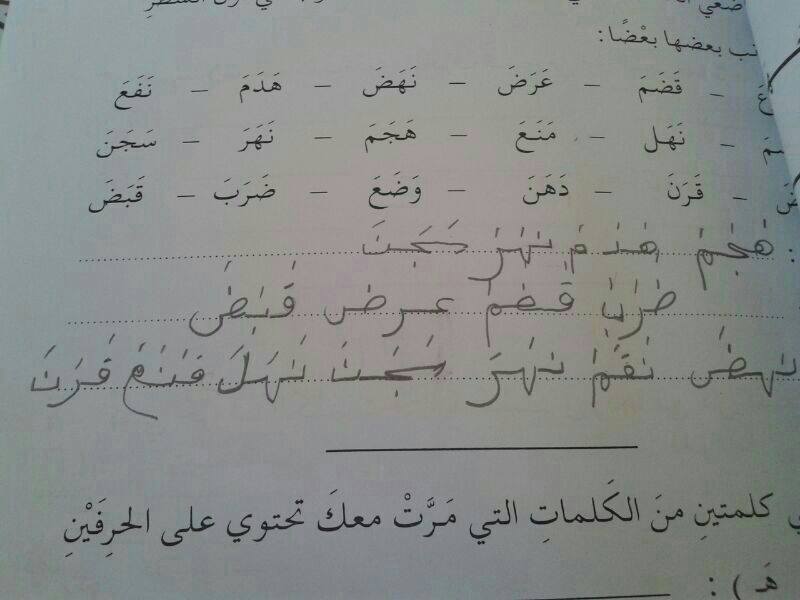 نب بعضها بعْضًا :
قَضَمَ – عَرَضَ – نَهَضَ – هَدَمَ – نَفَعَ
نَهَل – مَنَعَ – هَجَمَ – نَهَرَ – سَجَنَ
– قَرَنَ – دَهَنَ – وَضَعَ – ضَرَبَ – قَبَضَ
هَجَمَ هَدَمَ نَهَرَ سَجَنَ
ضَرَبَ قَضَمَ عرض قَبَضَ
نهضَ نَقَمَ نهَرَ سَجَنَ نَهَلَ قَرَنَ
كلمتينِ منَ الكَلماتِ التي مَرَّتْ معكَ تحتوي على الحرِفَيْنِ